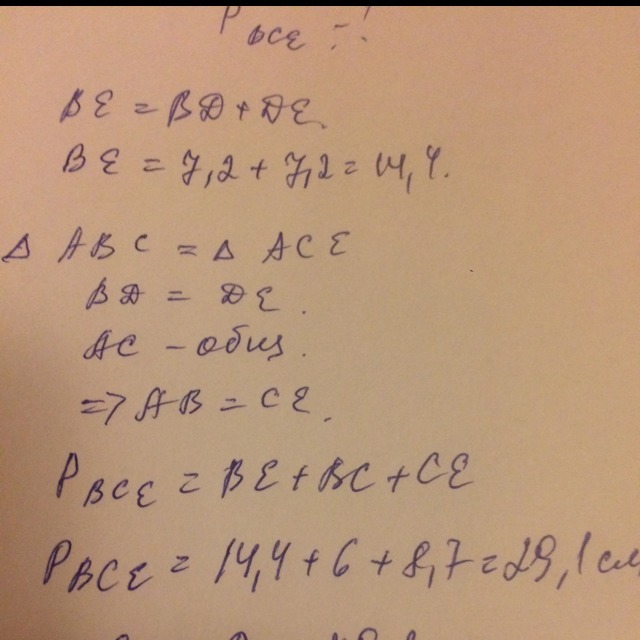 P BCE = ?
BE = BD + DE.
BE = 7,2 + 7,2 = 14,4.
Δ ABC = Δ ACE
BD = DE.
AC - общ.
=> AB = CE.
P BCE = BE + BC + CE
P BCE = 14,4 + 6 + 8,7 = 29,1 см